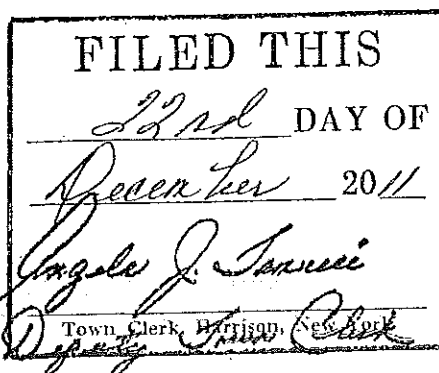 FILED THIS
22nd DAY OF
December 2011
Angelo J.
Town Clerk, Harrison, New York
Deputy Town Clerk